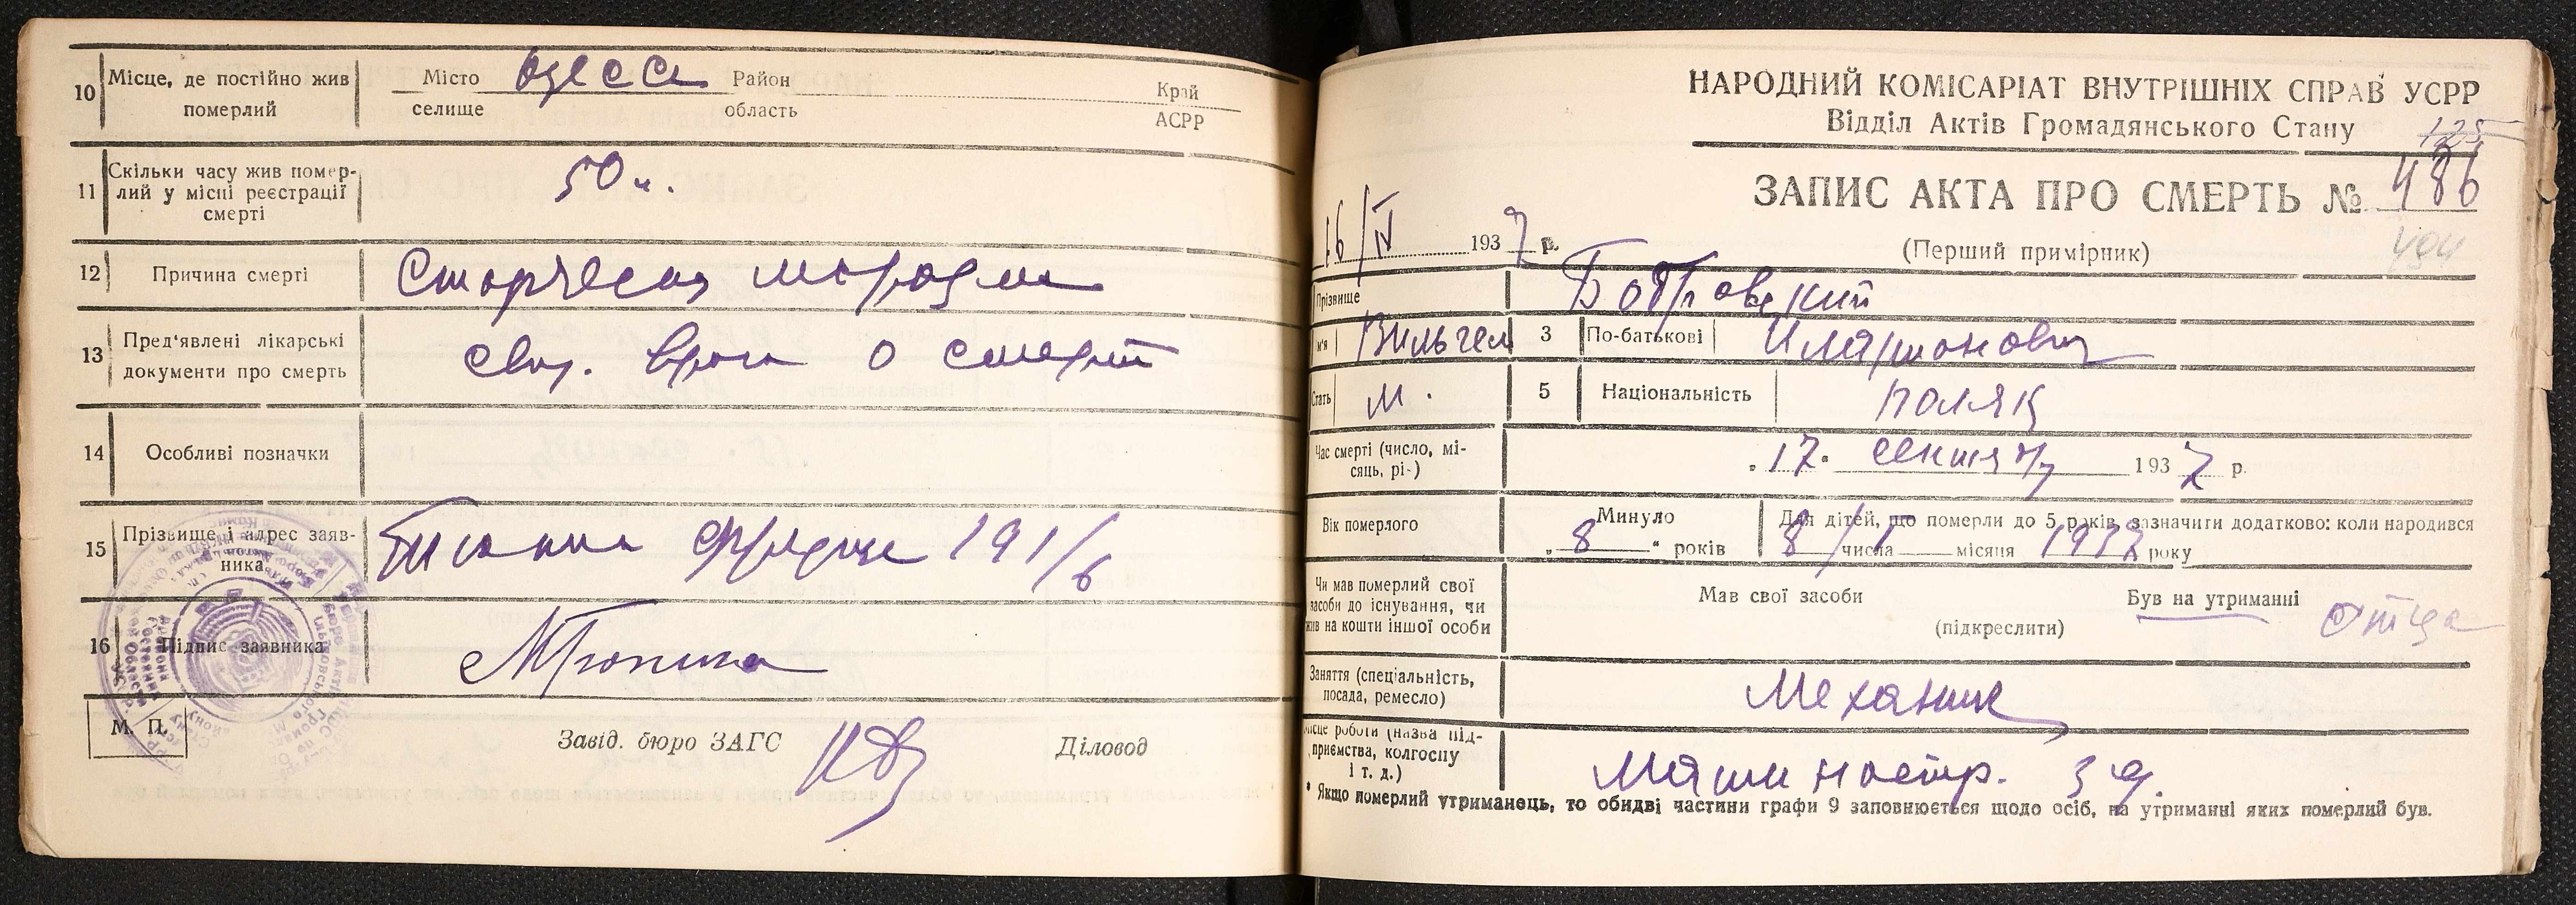 10 Місце, де постійно жив померлий
Місто селище Одесса Район область Край АСРР
11 Скільки часу жив помер-
лий у місці реєстрації
смерті
50 л.
12 Причина смерті
Старческий маразм
13 Пред'явлені лікарські
документи про смерть
свид. врача о смерти
14 Особливі позначки
15 Прізвище і адрес заяв-
ника
191/6
16 Підпис заявника
М. П.
Завід. бюро ЗАГС
Діловод
НАРОДНИЙ КОМІСАРІАТ ВНУТРІШНІХ СПРАВ УСРР
Відділ Актів Громадянського Стану
125
ЗАПИС АКТА ПРО СМЕРТЬ № 486
(Перший примірник)
494
16/IV 1937 р.
Прізвище
Бобровский
м'я Вильгельм 3 По-батькові Иларионович
Стать М. 5 Національність поляк
Час смерті (число, мі-
сяць, рі-)
„17" 1937 р.
Вік померлого
Минуло
„8" років
Для дітей, що померли до 5 років, зазначити додатково: коли народився
8/ числа місяця 1937 року
Чи мав померлий свої
засоби до існування, чи
жив на кошти іншої особи
Мав свої засоби
Був на утриманні отца
(підкреслити)
Заняття (спеціальність,
посада, ремесло)
Механик
Місце роботи (назва під-
приємства, колгоспу
і т. д.)
Машиностр. зд.
* Якщо померлий утриманець, то обидві частини графи 9 заповнюється щодо осіб, на утриманні яких померлий був.